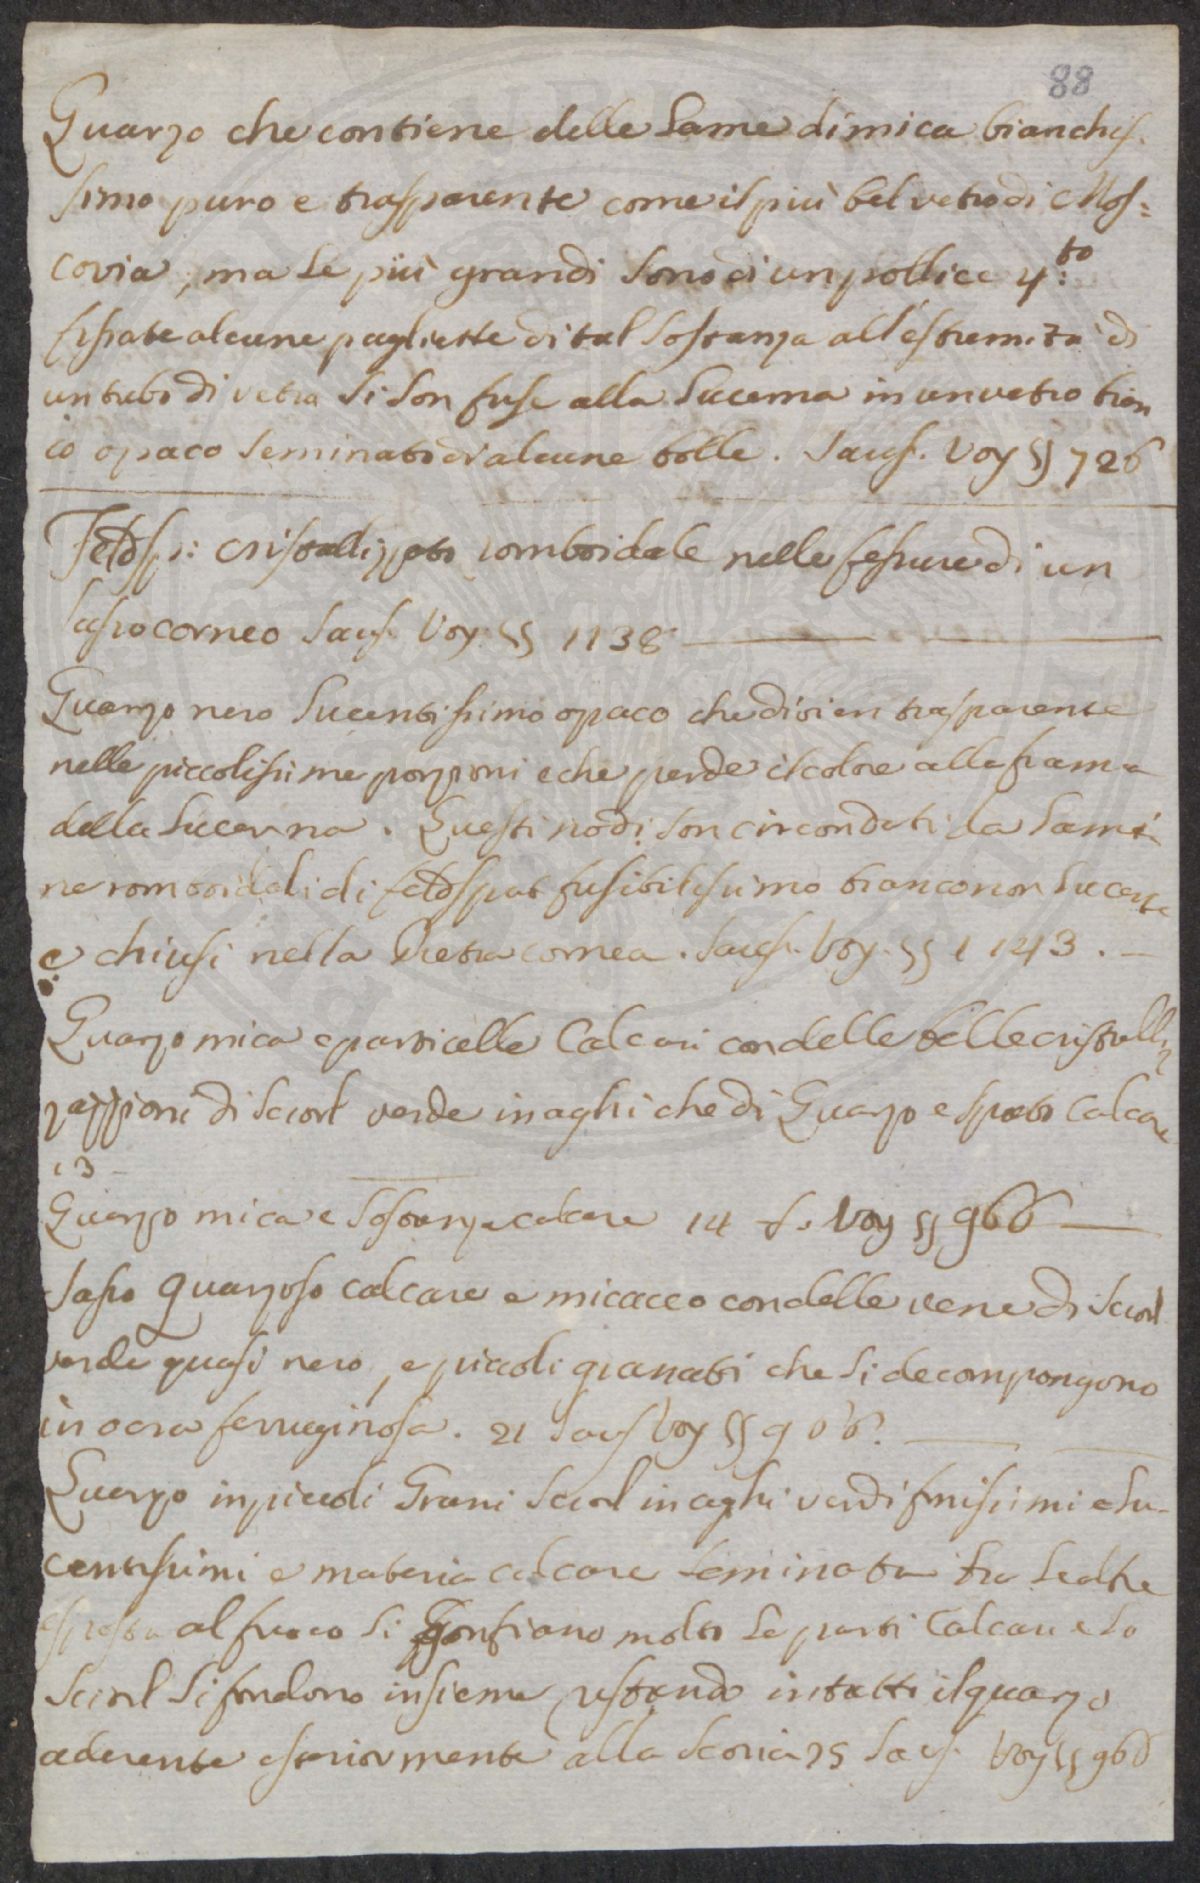 88
Quarzo che contiene delle Lame di mica bianchis-
simo puro e trasparente come il più bel vetro di Mos=
covia, ma le più grandi sono di un pollice 4.to
fissate alcune pagliette di tal sostanza all'estremità di
un tubo di vetro si son fuse alla Lucerna in un vetro bian
co opaco seminato di alcune bolle. Saus. Voy §§ 726
Feldsp: cristallizzato romboidale nelle fessure di un
sasso corneo Saus. Voy. §§ 1138
Quarzo nero lucentissimo opaco che divien trasparente
nelle piccolissime porzioni e che perde il colore alla fiama
della Lucerna. Questi nodi son circondati da Lami
ne romboidali di feldspat fusibilissimo bianco non lucente
e chiusi nella Pietra cornea. Saus. Voy. §§ 1143.
Quarzo mica e particelle Calcari con delle belle cristalli
zazzioni di Sciorl verde in aghi che di Quarzo e spato Calcare
13
Quarzo mica e sostanza calcare 14 S. Voy §§ 966
Sasso Quarzoso calcare e micaceo con delle vene di Sciorl
verde quasi nero, e piccoli granati che si decompongono
in ocra ferruginosa. 21 Saus Voy §§ 966.
Quarzo in piccoli Grani Sciorl in aghi verdi finissimi e lu-
centissimi e materia calcare seminata tra le altre
esposta al fuoco si Gonfiano molto le parti Calcari e lo
Sciorl si fondono insieme restando intatti il quarzo
aderente esteriormente alla scoria 25 Saus. Voy §§ 966